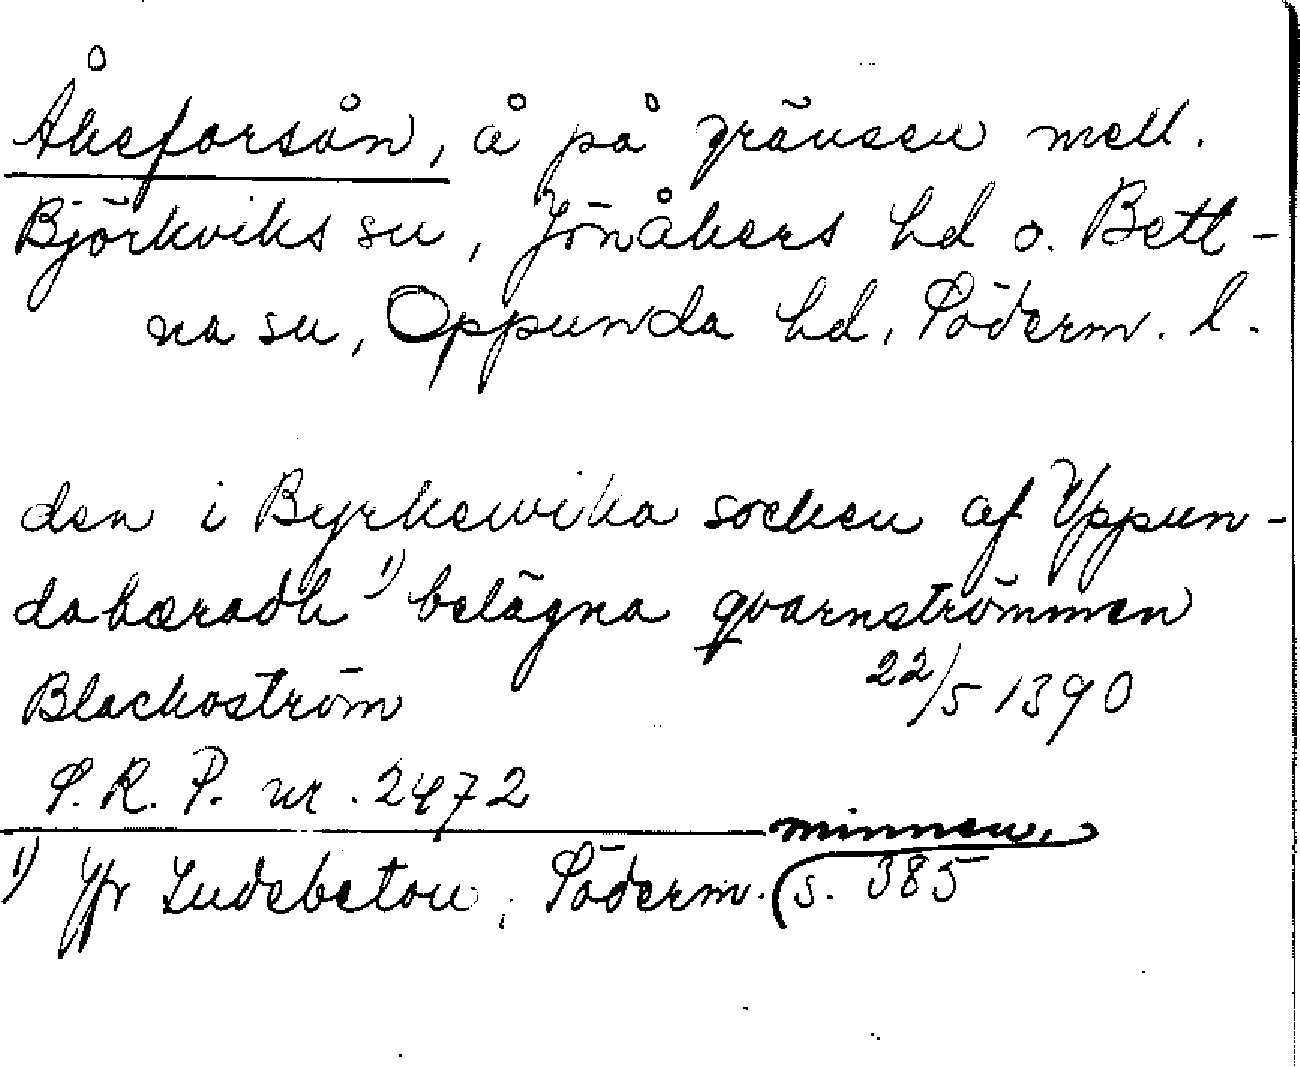 Åkeforsån, å på gränsen mell.
Björkviks sn, Jönåkers hd o. Bett-
na sn, Oppunda hd, Söderm. l.
den i Byrkewika socken af Yppun-
dahæradh 1) belägna qvarnströmmen
Blackoström 22/5 1390
S. R. P. nr. 2472
1) Jfr Ludsbeton, Söderm. minnen, s. 385